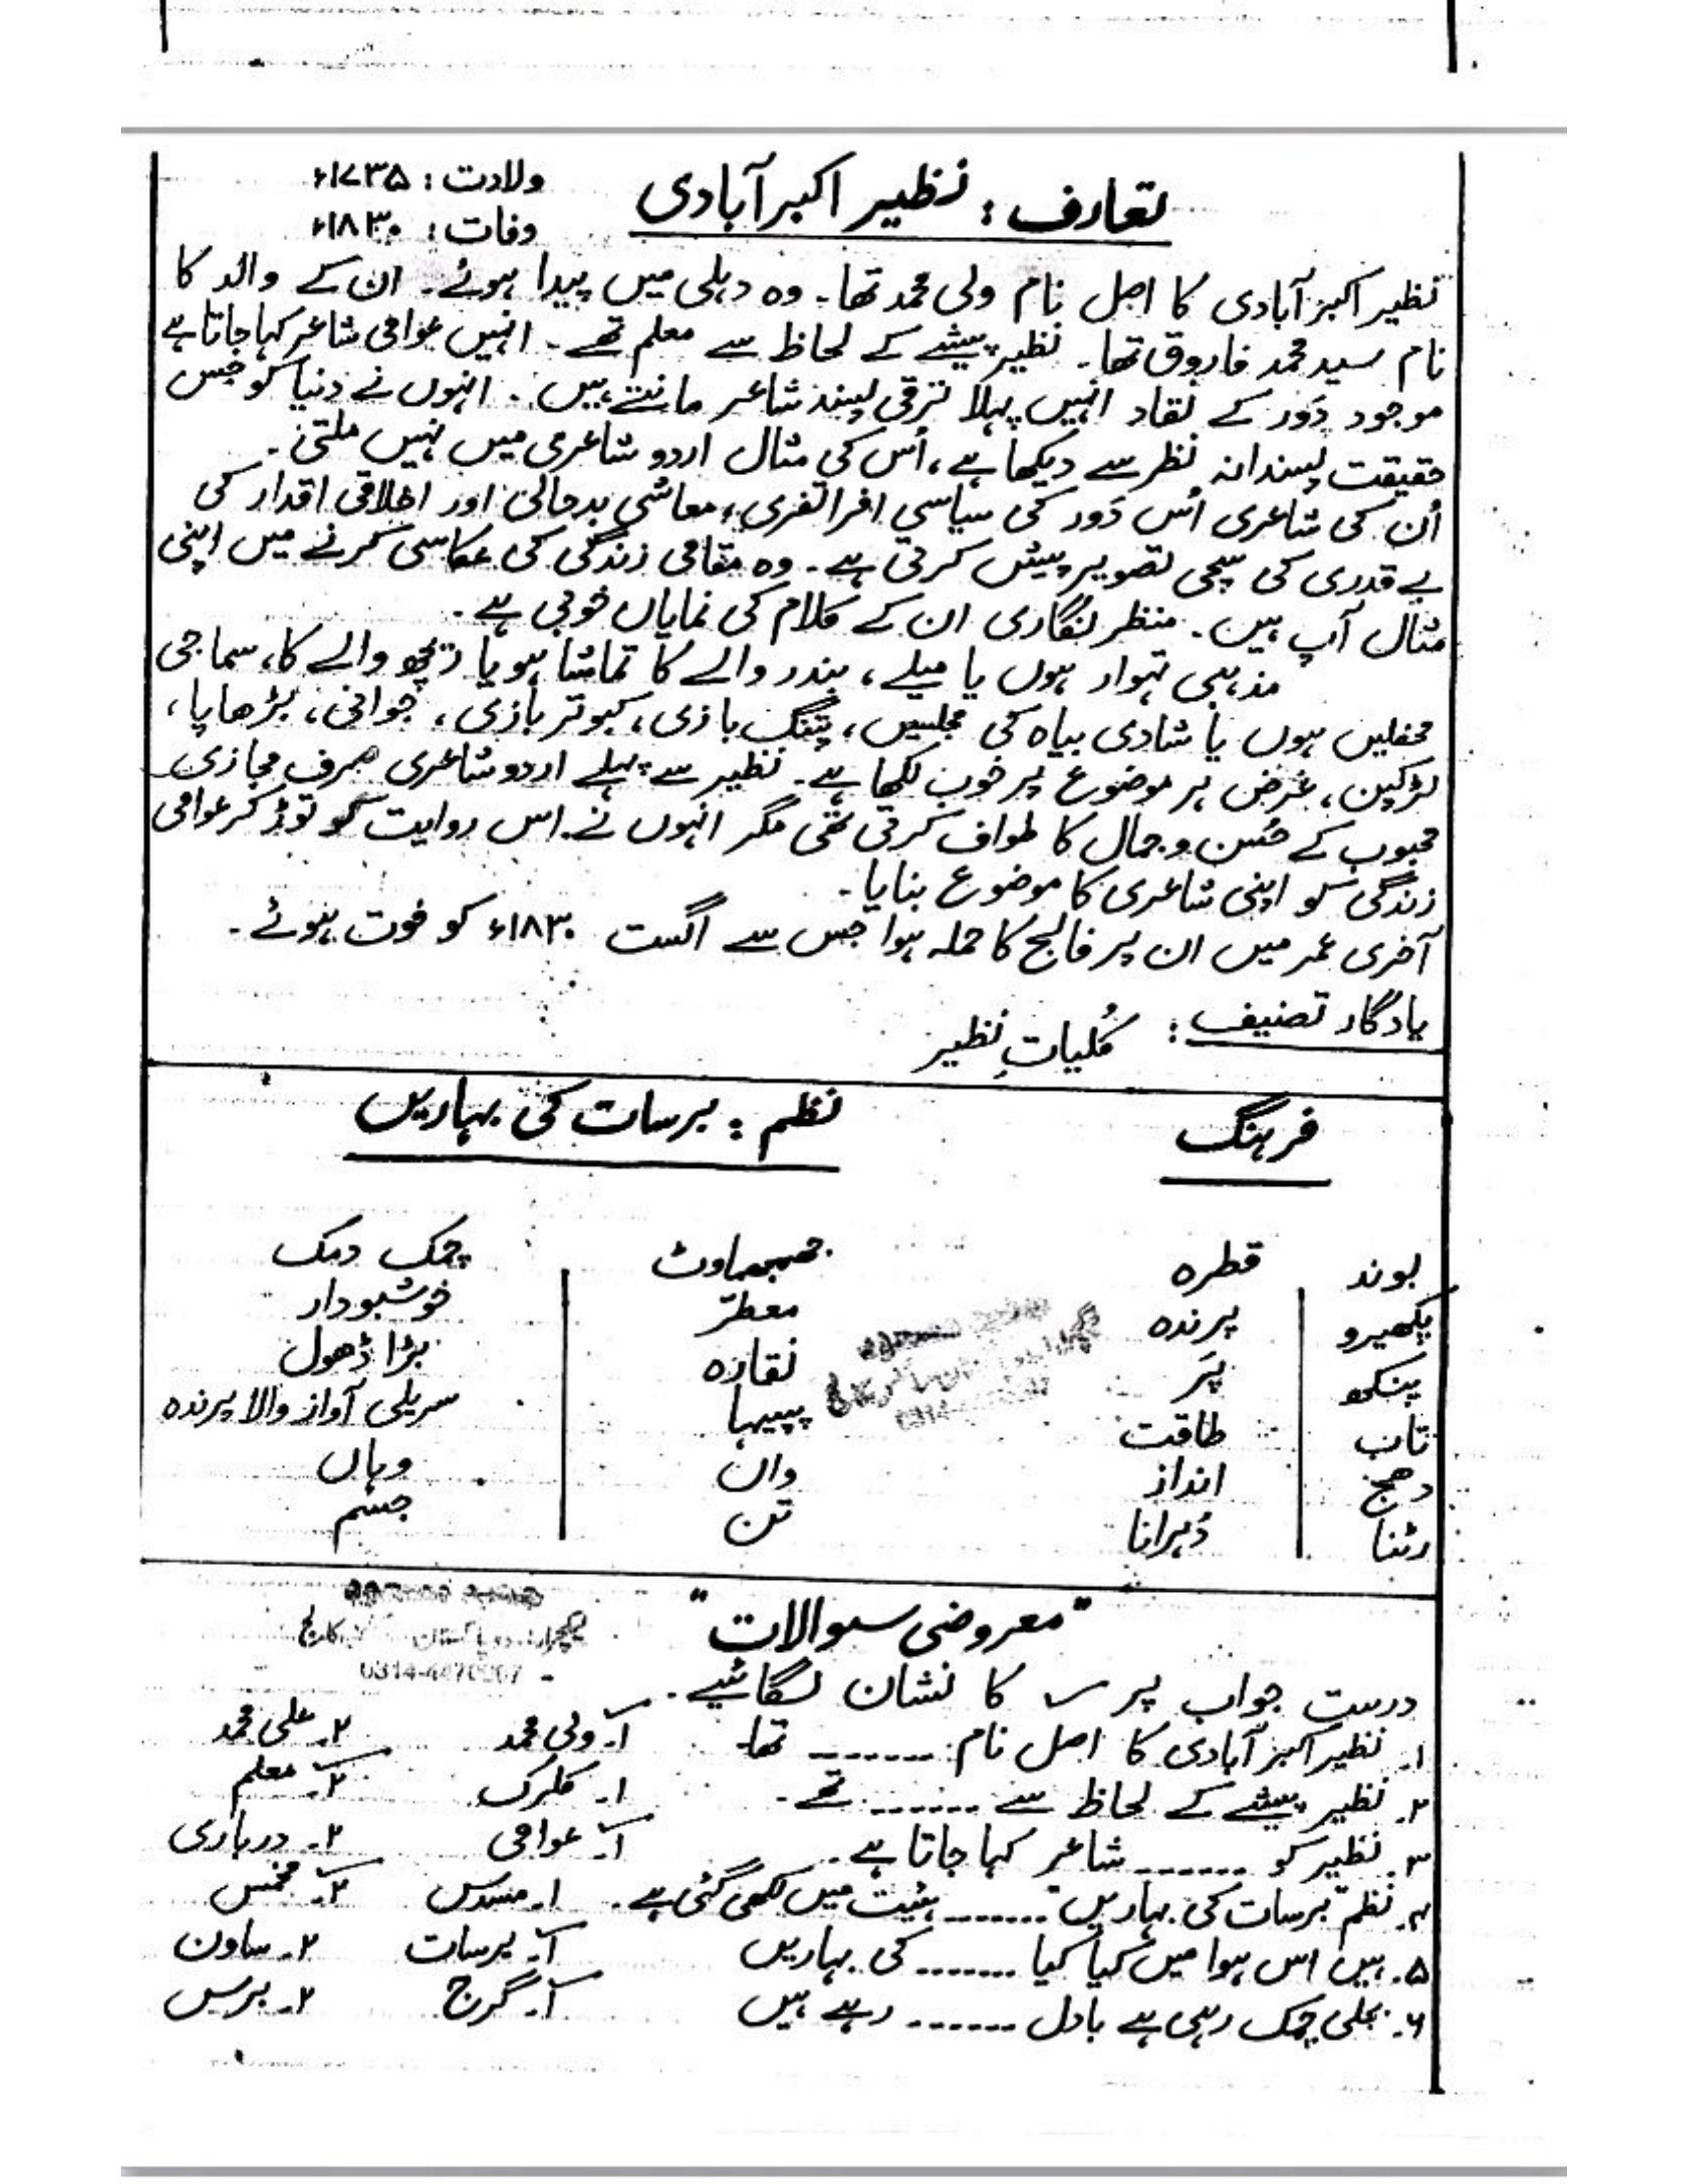 تعارف: نظیر اکبر آبادی
ولادت: ۱۷۳۵ء
وفات: ۱۸۳۰ء
نظیر اکبر آبادی کا اصل نام ولی محمد تھا۔ وہ دہلی میں پیدا ہوئے۔ ان کے والد کا
نام سید محمد فاروق تھا۔ نظیر پیشے کے لحاظ سے معلم تھے۔ انہیں عوامی شاعر کہا جاتا ہے
موجود دَور کے نقاد انہیں پہلا ترقی پسند شاعر مانتے ہیں۔ انہوں نے دنیا کو جس
حقیقت پسندانہ نظر سے دیکھا ہے، اُس کی مثال اردو شاعری میں نہیں ملتی۔
اُن کی شاعری اُس دَور کی سیاسی افراتفری، معاشی بدحالی اور اخلاقی اقدار کی
بے قدری کی سچی تصویر پیش کرتی ہے۔ وہ مقامی زندگی کی عکاسی کرنے میں اپنی
مثال آپ ہیں۔ منظر نگاری ان کے کلام کی نمایاں خوبی ہے۔
مذہبی تہوار ہوں یا میلے، بندر والے کا تماشا ہو یا ریچھ والے کا، سماجی
محفلیں ہوں یا شادی بیاہ کی مجلسیں، پتنگ بازی، کبوتر بازی، جوانی، بڑھاپا،
لڑکپن، غرض ہر موضوع پر خوب لکھا ہے۔ نظیر سے پہلے اردو شاعری صرف مجازی
محبوب کے حُسن و جمال کا طواف کرتی تھی مگر انہوں نے اس روایت کو توڑ کر عوامی
زندگی کو اپنی شاعری کا موضوع بنایا۔
آخری عمر میں ان پر فالج کا حملہ ہوا جس سے اگست ۱۸۳۰ء کو فوت ہوئے۔
یادگار تصنیف: کُلیاتِ نظیر
فرہنگ نظم: برسات کی بہاریں
بوند قطرہ جھمجھماوٹ چمک دمک
پکھیرو پرندہ معطر خوشبودار
پنکھ پَر نقارہ بڑا ڈھول
تاب طاقت پپیہا سریلی آواز والا پرندہ
دھج انداز واں وہاں
رٹنا دُہرانا تن جسم
"معروضی سوالات"
0314-4470007
درست جواب پر ✓ کا نشان لگائیے۔
۱۔ نظیر اکبر آبادی کا اصل نام ------- تھا۔ ۱۔ ولی محمد ۲۔ علی محمد
۲۔ نظیر پیشے کے لحاظ سے ------- تھے۔ ۱۔ کلرک ۲۔ معلم
۳۔ نظیر کو ------- شاعر کہا جاتا ہے۔ ۱۔ عوامی ۲۔ درباری
۴۔ نظم "برسات کی بہاریں" ------- ہئیت میں لکھی گئی ہے۔ ۱۔ مسدس ۲۔ مخمس
۵۔ ہیں اس ہوا میں کیا کیا ------- کی بہاریں ۱۔ برسات ۲۔ ساون
۶۔ بجلی چمک رہی ہے بادل ------- رہے ہیں ۱۔ گرج ۲۔ برس